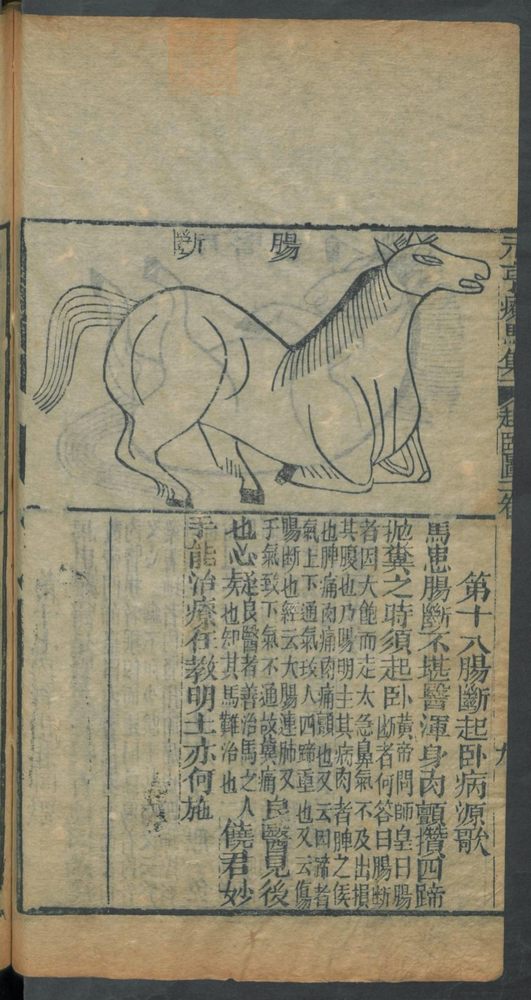 腸斷
元亨療馬集 起臥圖二卷
九
第十八腸斷起卧病源歌
馬患腸斷不堪醫渾身肉顫攢四蹄
拋糞之時須起卧黃帝問師皇曰腸
斷者何答曰腸斷
者因大飽而走太急鼻氣不及出損
其腹也乃陽明主其病肉者脾之俟
也脾痛肉痛肉痛顫也又云因蹄者
氣上下通氣攻人四蹄重也又云傷
腸斷也經云大腸連肺又
于氣致下氣不通故糞痛良醫見後
也心疑良醫者善治馬之人
也知其馬難治也饒君妙
手能治療在教明士亦何施